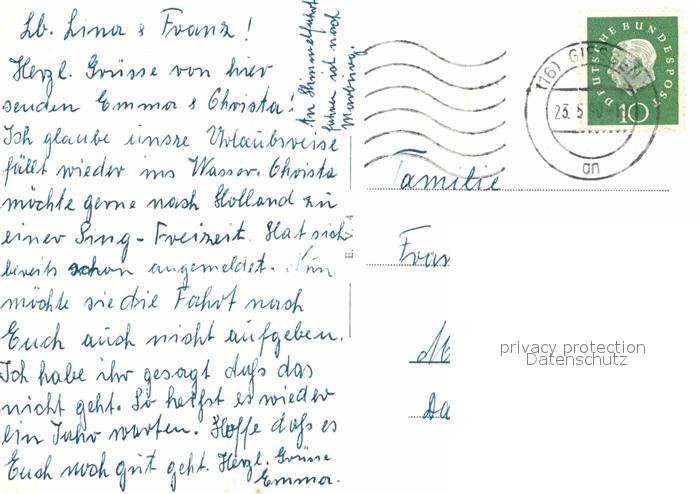 Lb. Lina & Franz!
Herzl. Grüsse von hier
senden Emma & Christa!
Ich glaube unsre Urlaubsreise
fällt wieder ins Wasser. Christa
möchte gerne nach Holland zu
einer Sing-Freizeit. Hat sich
bereits schon angemeldet. Nun
möchte sie die Fahrt nach
Euch auch nicht aufgeben.
Ich habe ihr gesagt daß das
nicht geht. So heißt es wieder
ein Jahr warten. Hoffe daß es
Euch noch gut geht. Herzl. Grüsse
Emma.
An Himmelfahrt
fuhren wir nach
Marburg.
DEUTSCHE BUNDESPOST
10
(16) GIESSEN
23. 5.
an
Familie
Fran
M
Da
privacy protection
Datenschutz